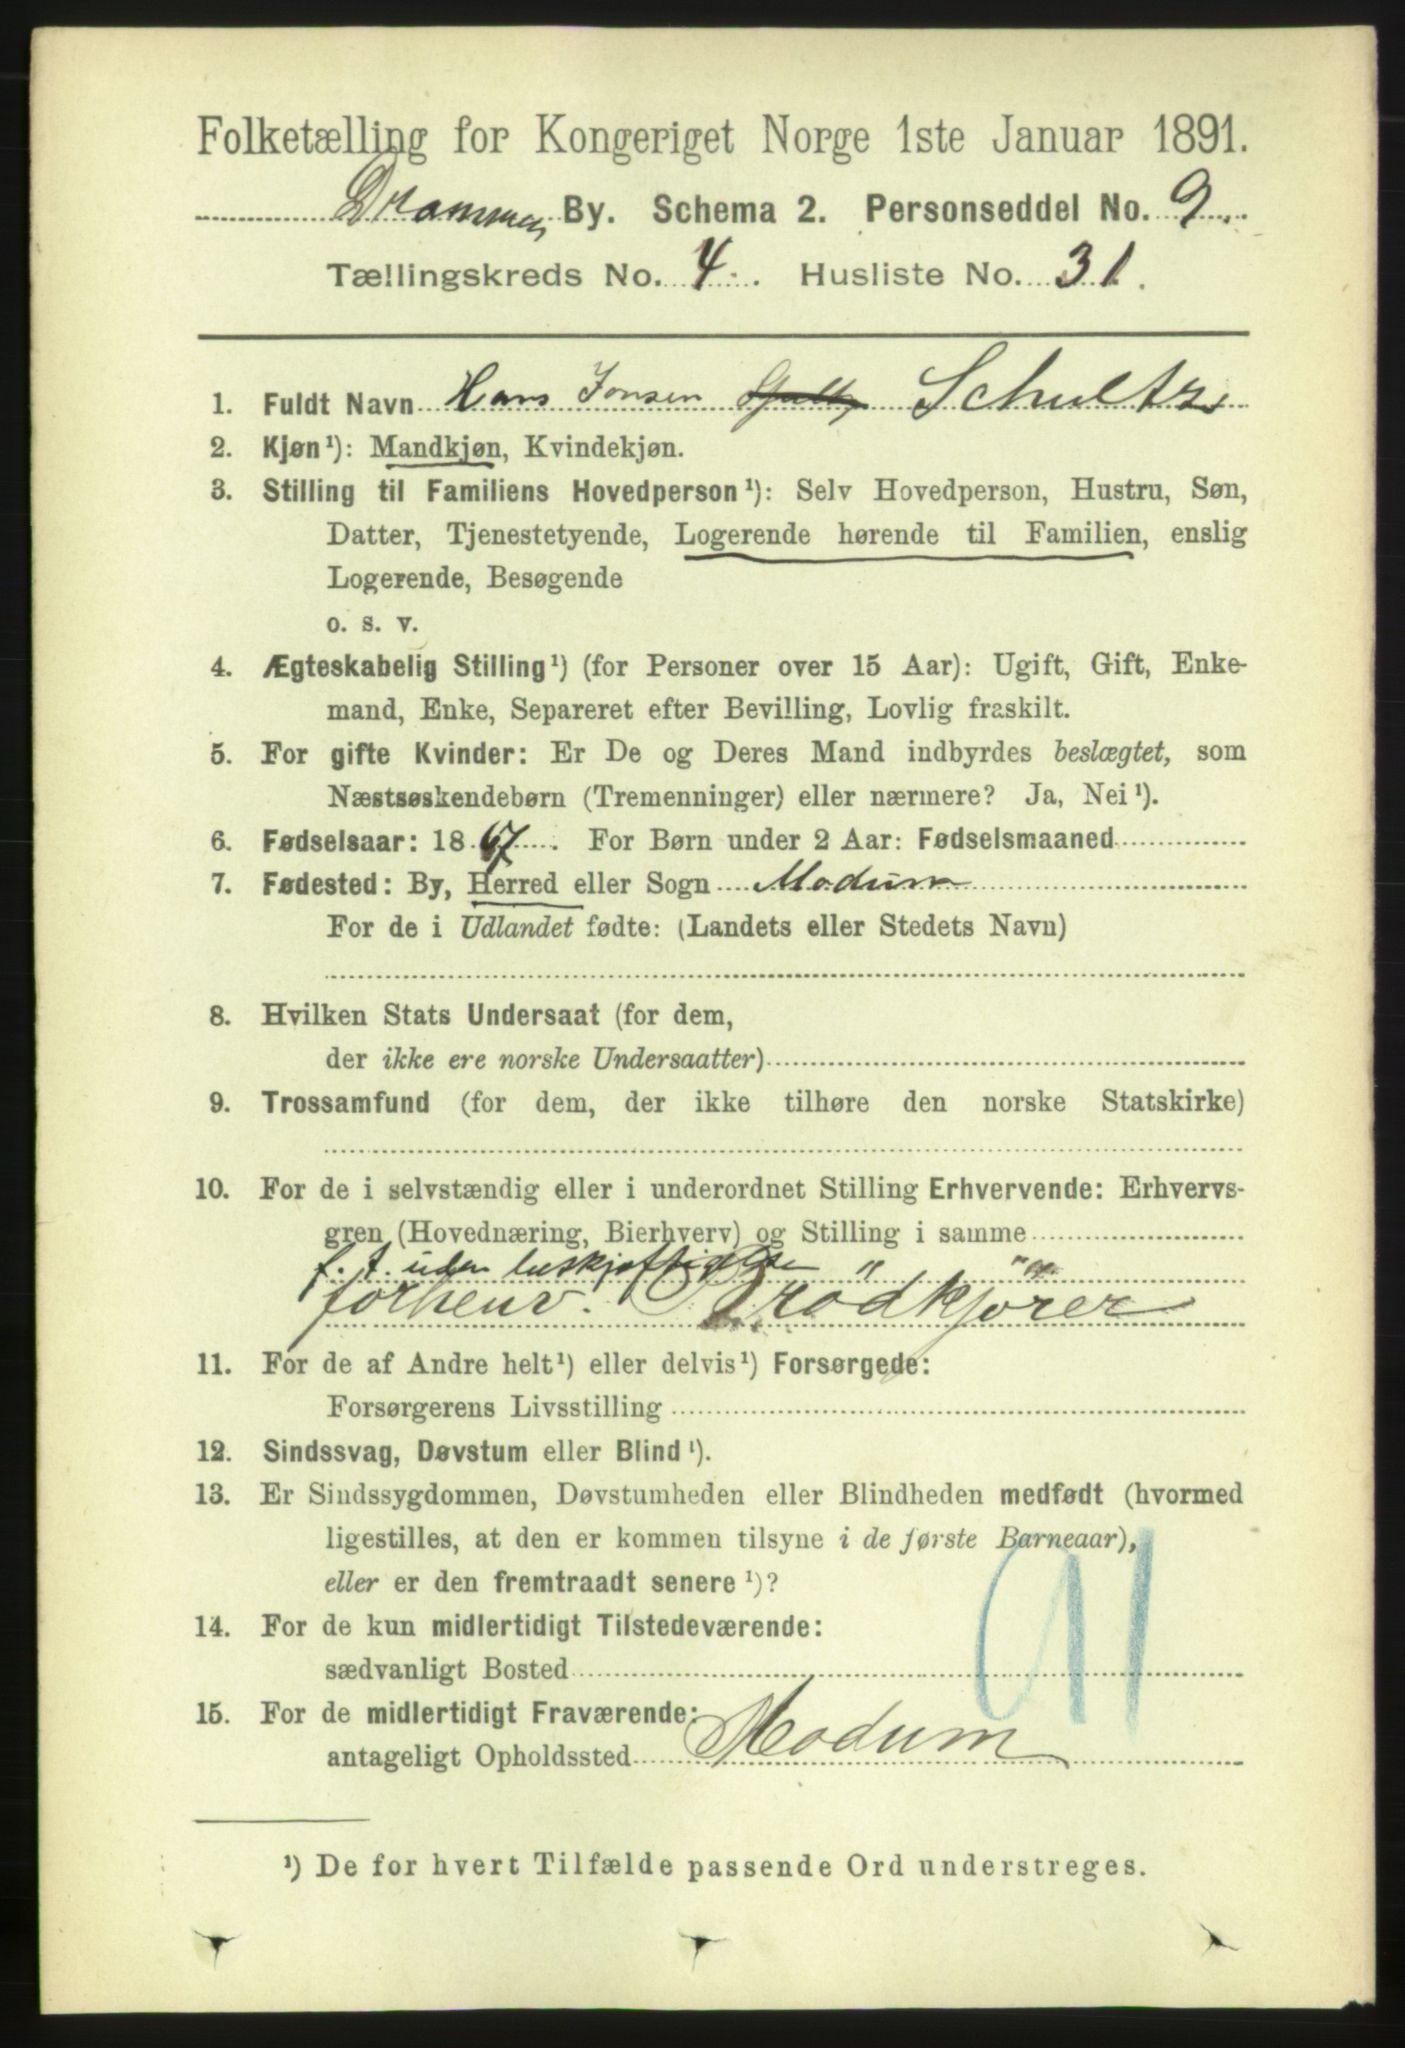 Folketælling for Kongeriget Norge 1ste Januar 1891.
Drammen By. Schema 2. Personseddel No. 9.
Tællingskreds No. 4. Husliste No. 31.
1. Fuldt Navn Hans Jonsen Schultz
2. Kjøn¹): Mandkjøn, Kvindekjøn.
3. Stilling til Familiens Hovedperson¹): Selv Hovedperson, Hustru, Søn,
Datter, Tjenestetyende, Logerende hørende til Familien, enslig
Logerende, Besøgende
o. s. v.
4. Ægteskabelig Stilling¹) (for Personer over 15 Aar): Ugift, Gift, Enke-
mand, Enke, Separeret efter Bevilling, Lovlig fraskilt.
5. For gifte Kvinder: Er De og Deres Mand indbyrdes beslægtet, som
Næstsøskendebørn (Tremenninger) eller nærmere? Ja, Nei¹).
6. Fødselsaar: 1867. For Børn under 2 Aar: Fødselsmaaned
7. Fødested: By, Herred eller Sogn Modum
For de i Udlandet fødte: (Landets eller Stedets Navn)
8. Hvilken Stats Undersaat (for dem,
der ikke ere norske Undersaatter)
9. Trossamfund (for dem, der ikke tilhøre den norske Statskirke)
10. For de i selvstændig eller i underordnet Stilling Erhvervende: Erhvervs-
gren (Hovednæring, Bierhverv) og Stilling i samme
f. t. uden beskjæftigelse " " "
forhenv. Brødkjører
11. For de af Andre helt¹) eller delvis¹) Forsørgede:
Forsørgerens Livsstilling
12. Sindssvag, Døvstum eller Blind¹).
13. Er Sindssygdommen, Døvstumheden eller Blindheden medfødt (hvormed
ligestilles, at den er kommen tilsyne i de første Barneaar),
eller er den fremtraadt senere¹)?
14. For de kun midlertidigt Tilstedeværende:
sædvanligt Bosted
15. For de midlertidigt Fraværende:
antageligt Opholdssted Modum
91
¹) De for hvert Tilfælde passende Ord understreges.